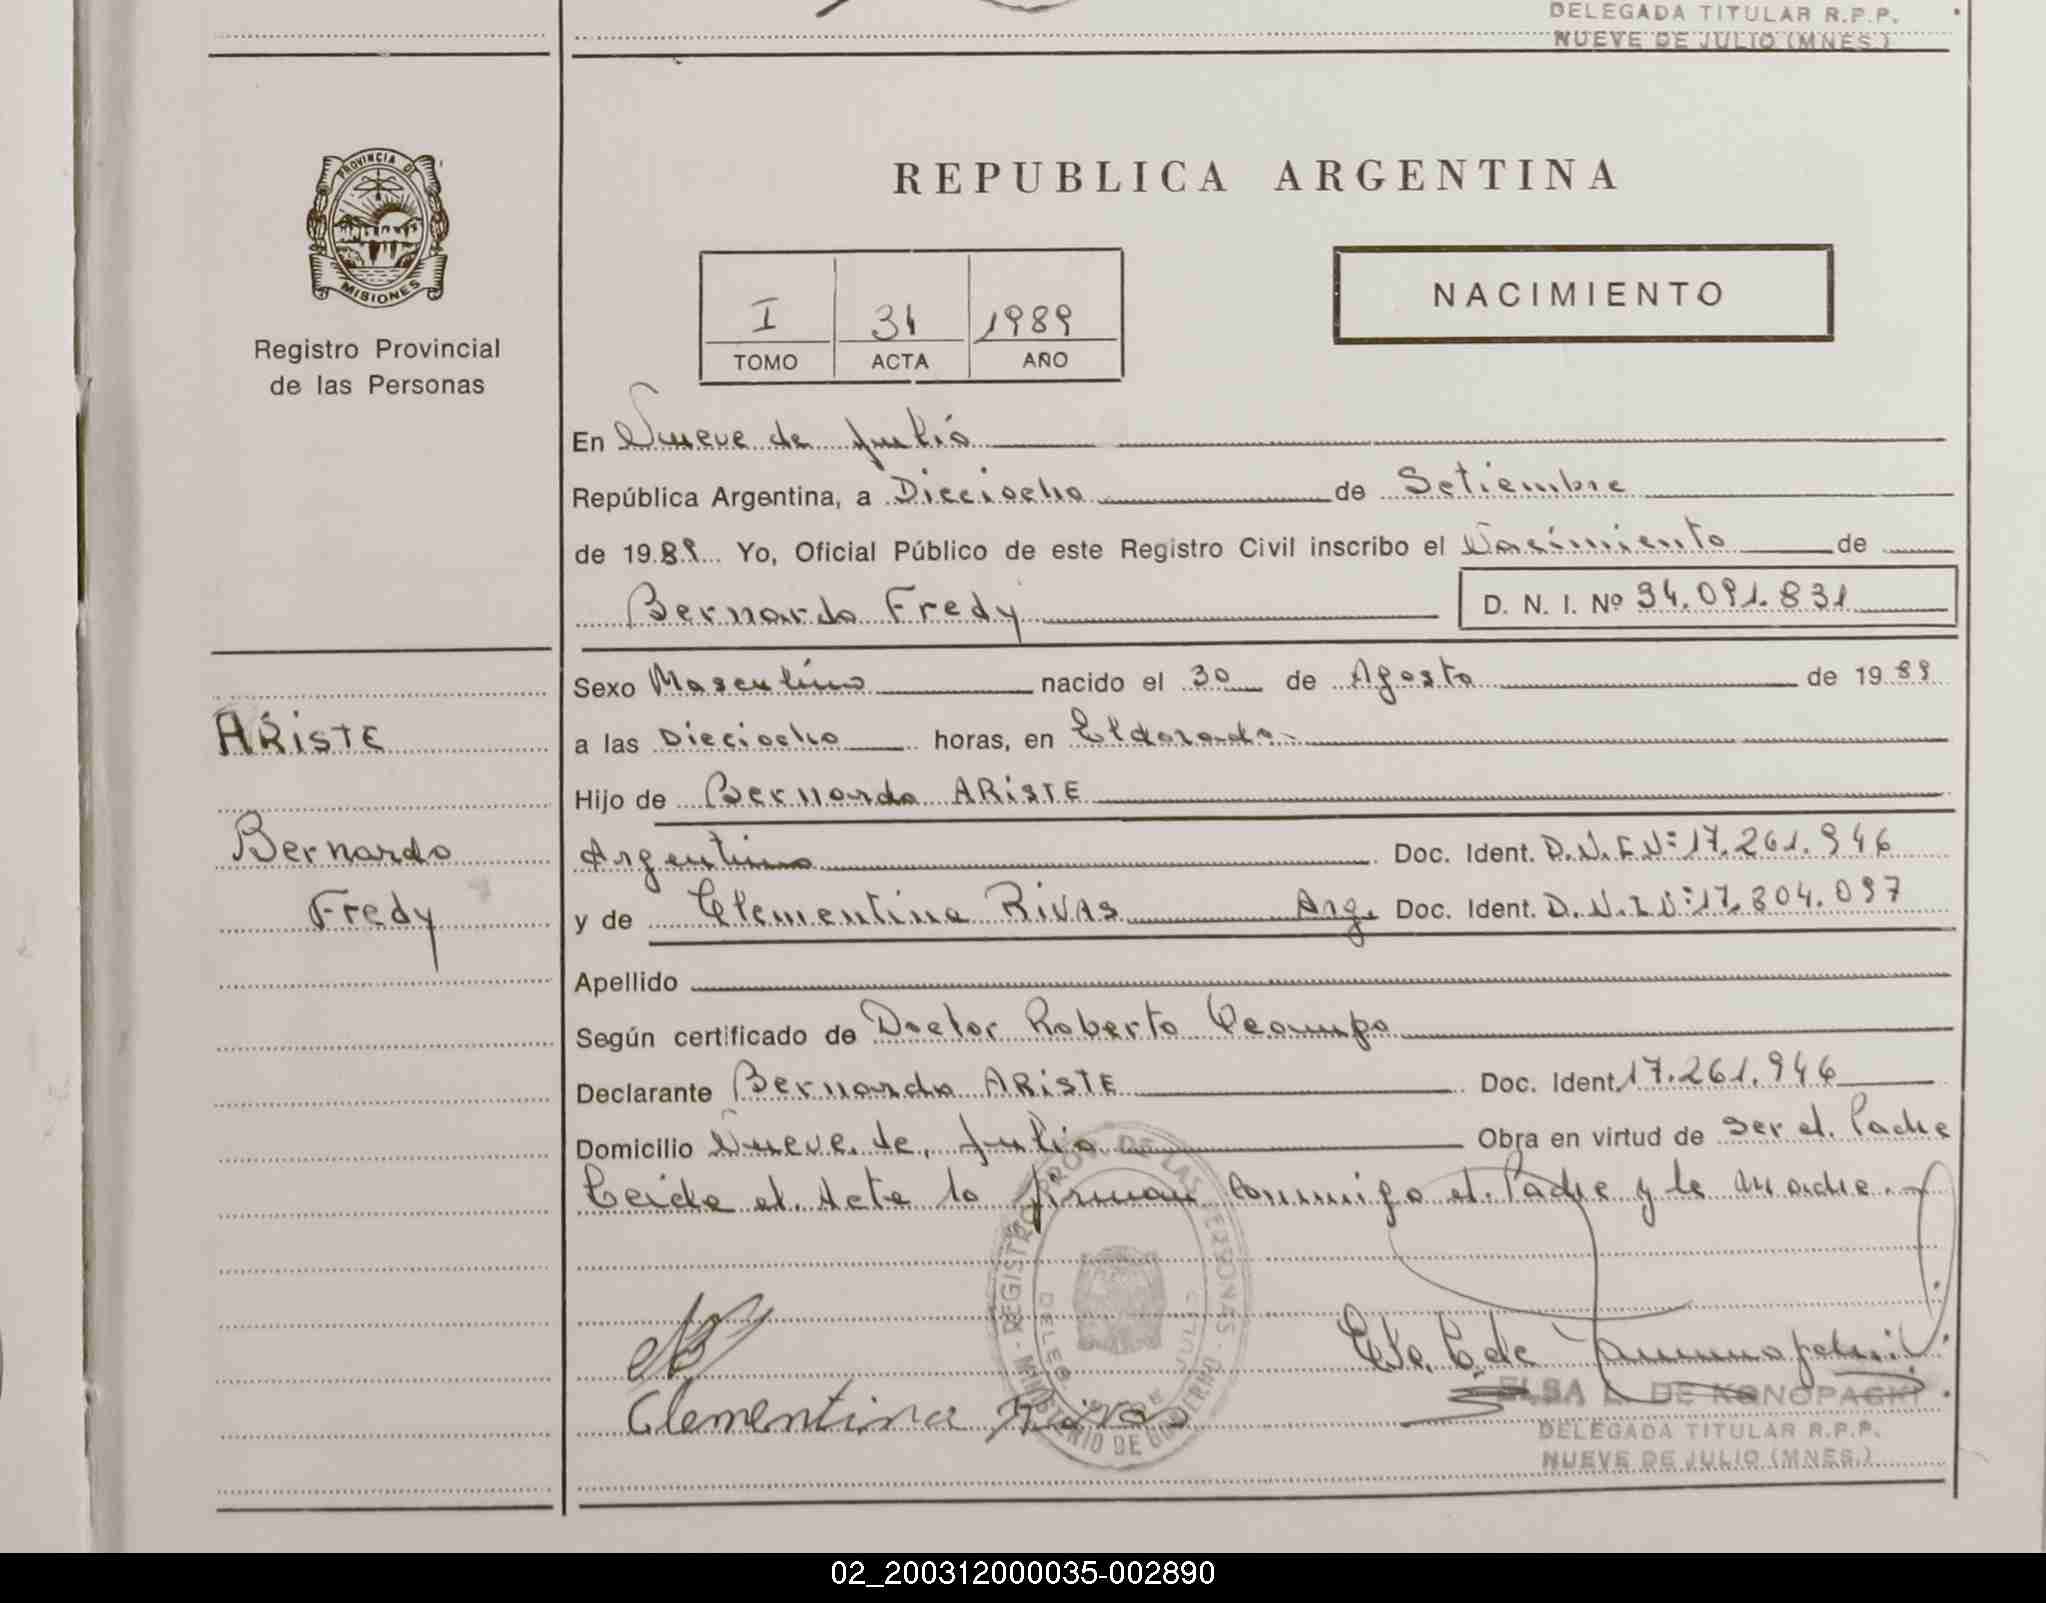 DELEGADA TITULAR R.P.P.
NUEVE DE JULIO (MNES.)
PROVINCIA DE
MISIONES
Registro Provincial
de las Personas
REPUBLICA ARGENTINA
NACIMIENTO
I 31 1989
TOMO ACTA AÑO
En Nueve de Julio
República Argentina, a Dieciocho de Setiembre
de 1989 Yo, Oficial Público de este Registro Civil inscribo el Nacimiento de
Bernardo Fredy D. N. I. Nº 34.091.831
Sexo Masculino nacido el 30 de Agosto de 1989
ARiSTE
Bernardo
Fredy
a las Dieciocho horas, en Eldorado
Hijo de Bernardo ARiSTE
Argentino Doc. Ident. D.N.I.Nº 17.261.946
y de Clementina RiVAS Arg. Doc. Ident. D.N.I.Nº 17.804.097
Apellido
Según certificado de Doctor Roberto Ocampo
Declarante Bernardo ARiSTE Doc. Ident. 17.261.946
Domicilio Nueve de Julio Obra en virtud de Ser el Padre
Leida el Acta la firman conmigo el Padre y la Madre.
REGISTRO PROV. DE LAS PERSONAS
MINISTERIO DE GOBIERNO
Clementina Rivas
ELSA L. DE KONOPACKI
DELEGADA TITULAR R.P.P.
NUEVE DE JULIO (MNES.)
02_200312000035-002890